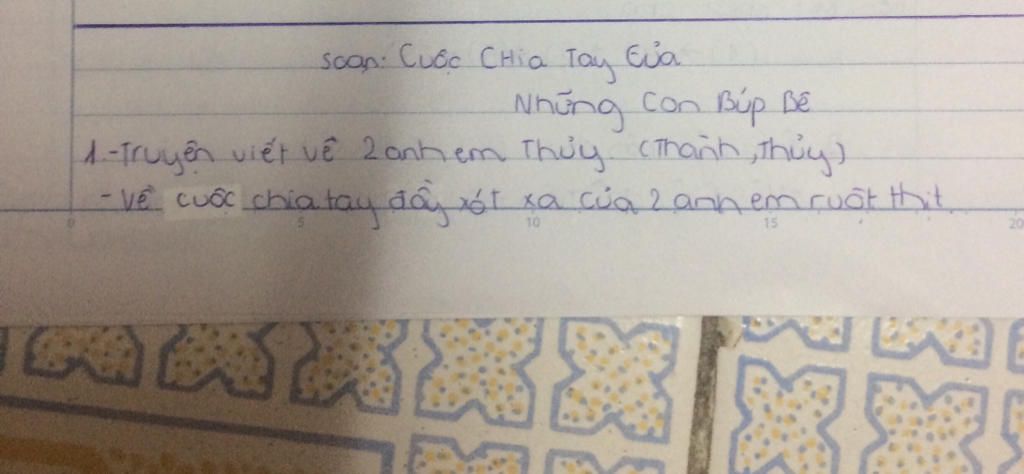 Soạn: Cuộc CHia Tay Của
Những Con Búp Bê
1.-Truyện viết về 2 anh em Thủy (Thành, Thủy)
- Về cuộc chia tay đầy xót xa của 2 anh em ruột thịt
0 5 10 15 20